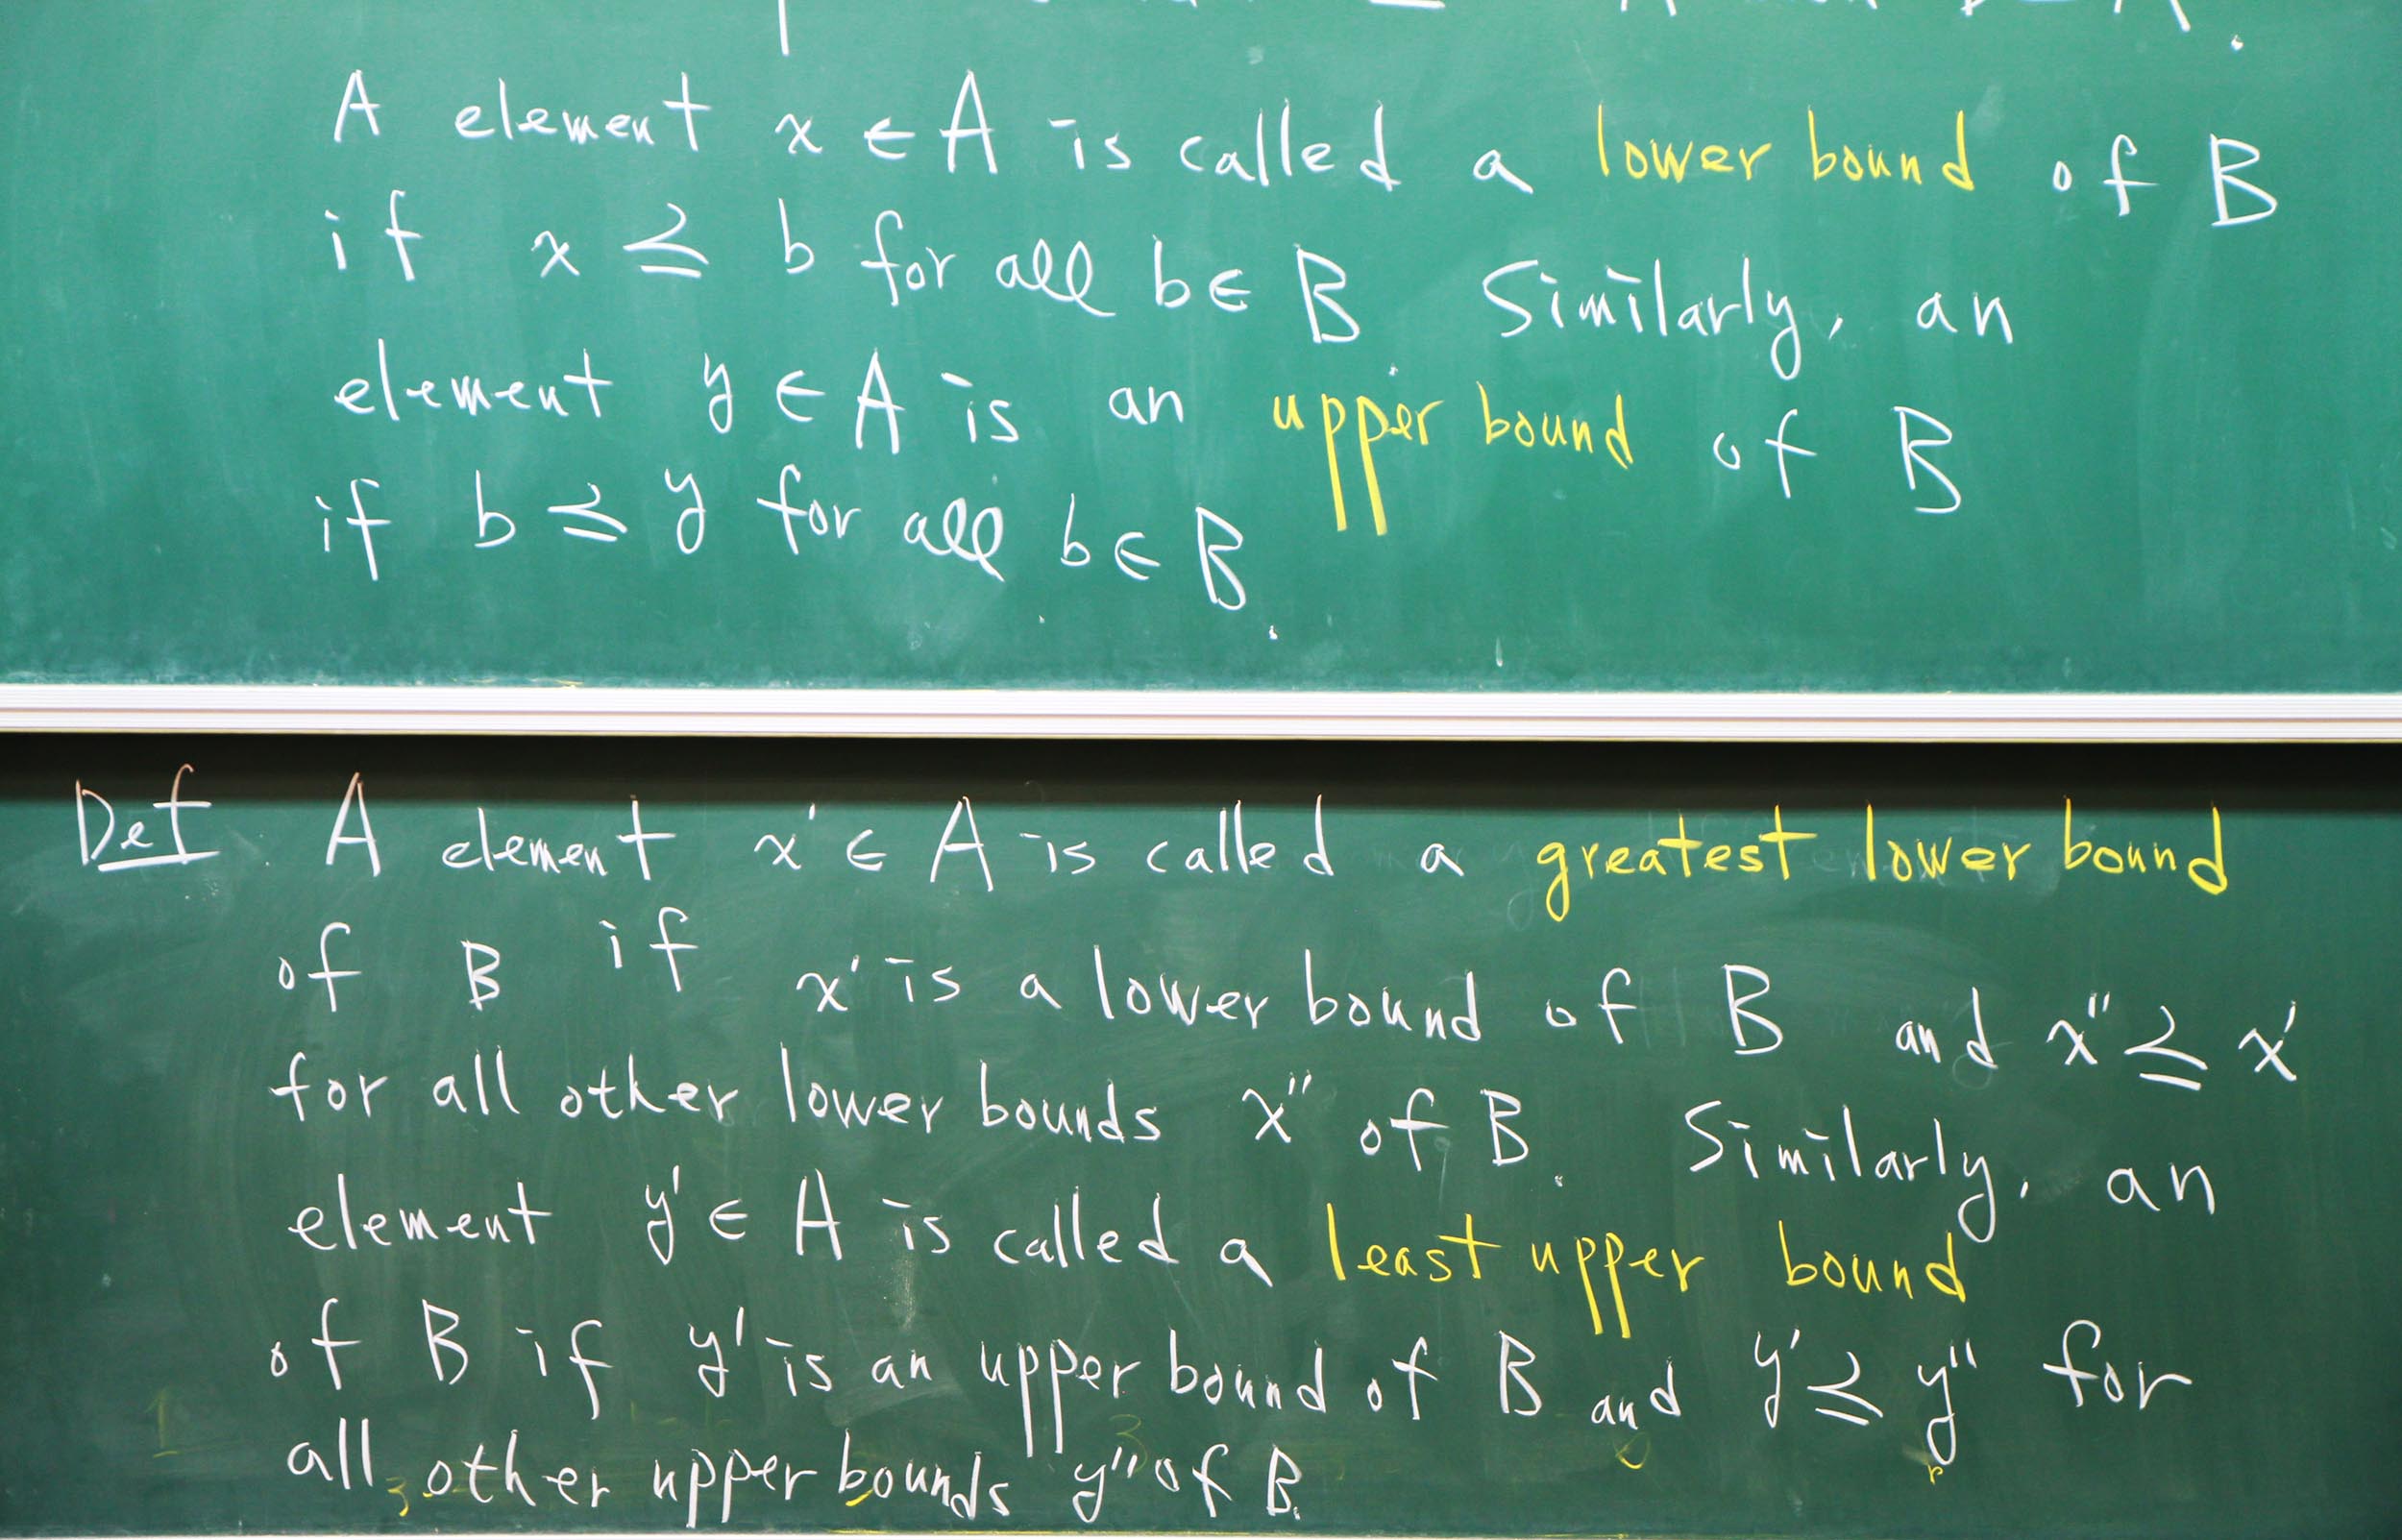 A element x ∈ A is called a lower bound of B
if x ⪯ b for all b ∈ B Similarly, an
element y ∈ A is an upper bound of B
if b ⪯ y for all b ∈ B.
Def. A element x' ∈ A is called a greatest lower bound
of B if x' is a lower bound of B and x'' ⪯ x'
for all other lower bounds x'' of B. Similarly, an
element y' ∈ A is called a least upper bound
of B if y' is an upper bound of B and y' ⪯ y'' for
all other upper bounds y'' of B.